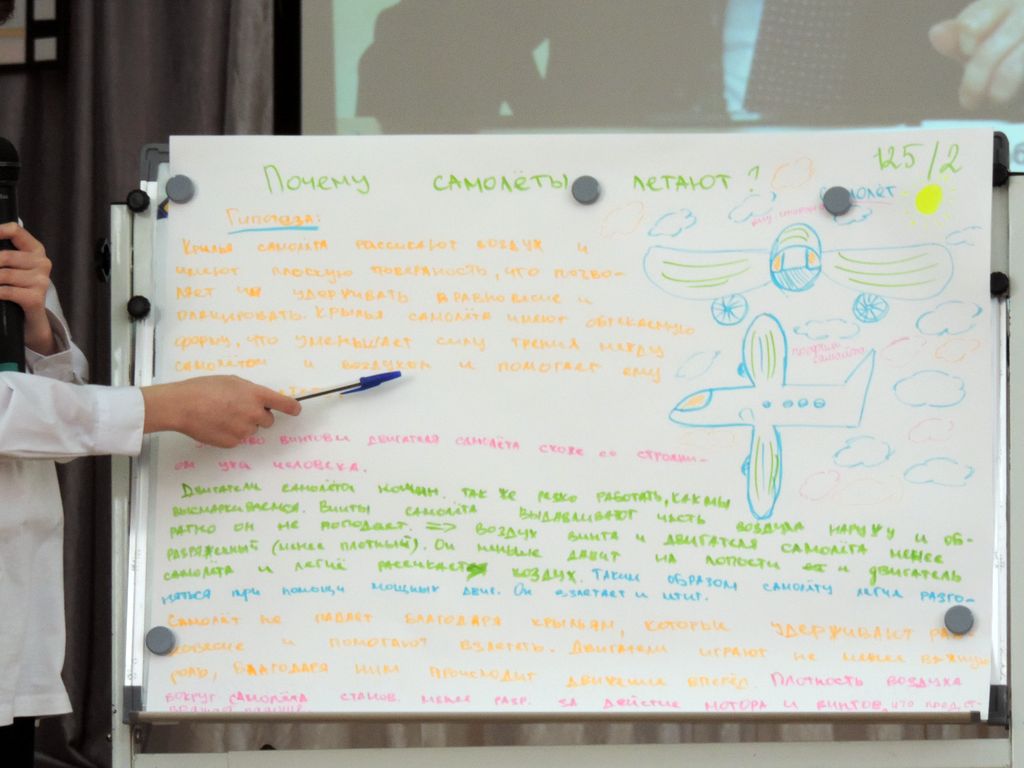 125/2
Почему самолёты летают?
Самолёт
Гипотеза:
Крылья самолёта рассикают воздух и
имеют плоскую поверхность, что позво-
ляет им удерживать вравновесие и
планировать. Крылья самолёта имеют обтекаемую
форму, что уменьшает силу трения между
самолётом и воздухом и помогает ему
винтовы двигателя самолёта схоже со строени-
ем уха человека.
Двигатели самолёта начин. так же резко работать, как мы
высмаркиваемся. Винты самолёта выдавливают часть воздуха наружу и об-
ратно он не попадает. => воздух винта и двигателя самолёта менее
разряженный (менее плотный). Он меньше давит на лопости и двигатель
самолёта и легче рассикает воздух. Таким образом самолёту легче разго-
няться при помощи мощных двиг. Он взлетает и
Самолёт не падает благодаря крыльям, которые удерживают рав-
новесие и помогают взлететь. Двигатели играют не менее важную
роль, благодаря ним происходит движение вперёд. Плотность воздуха
вокруг самолёта станов. менее разр. за действие мотора и винтов, что